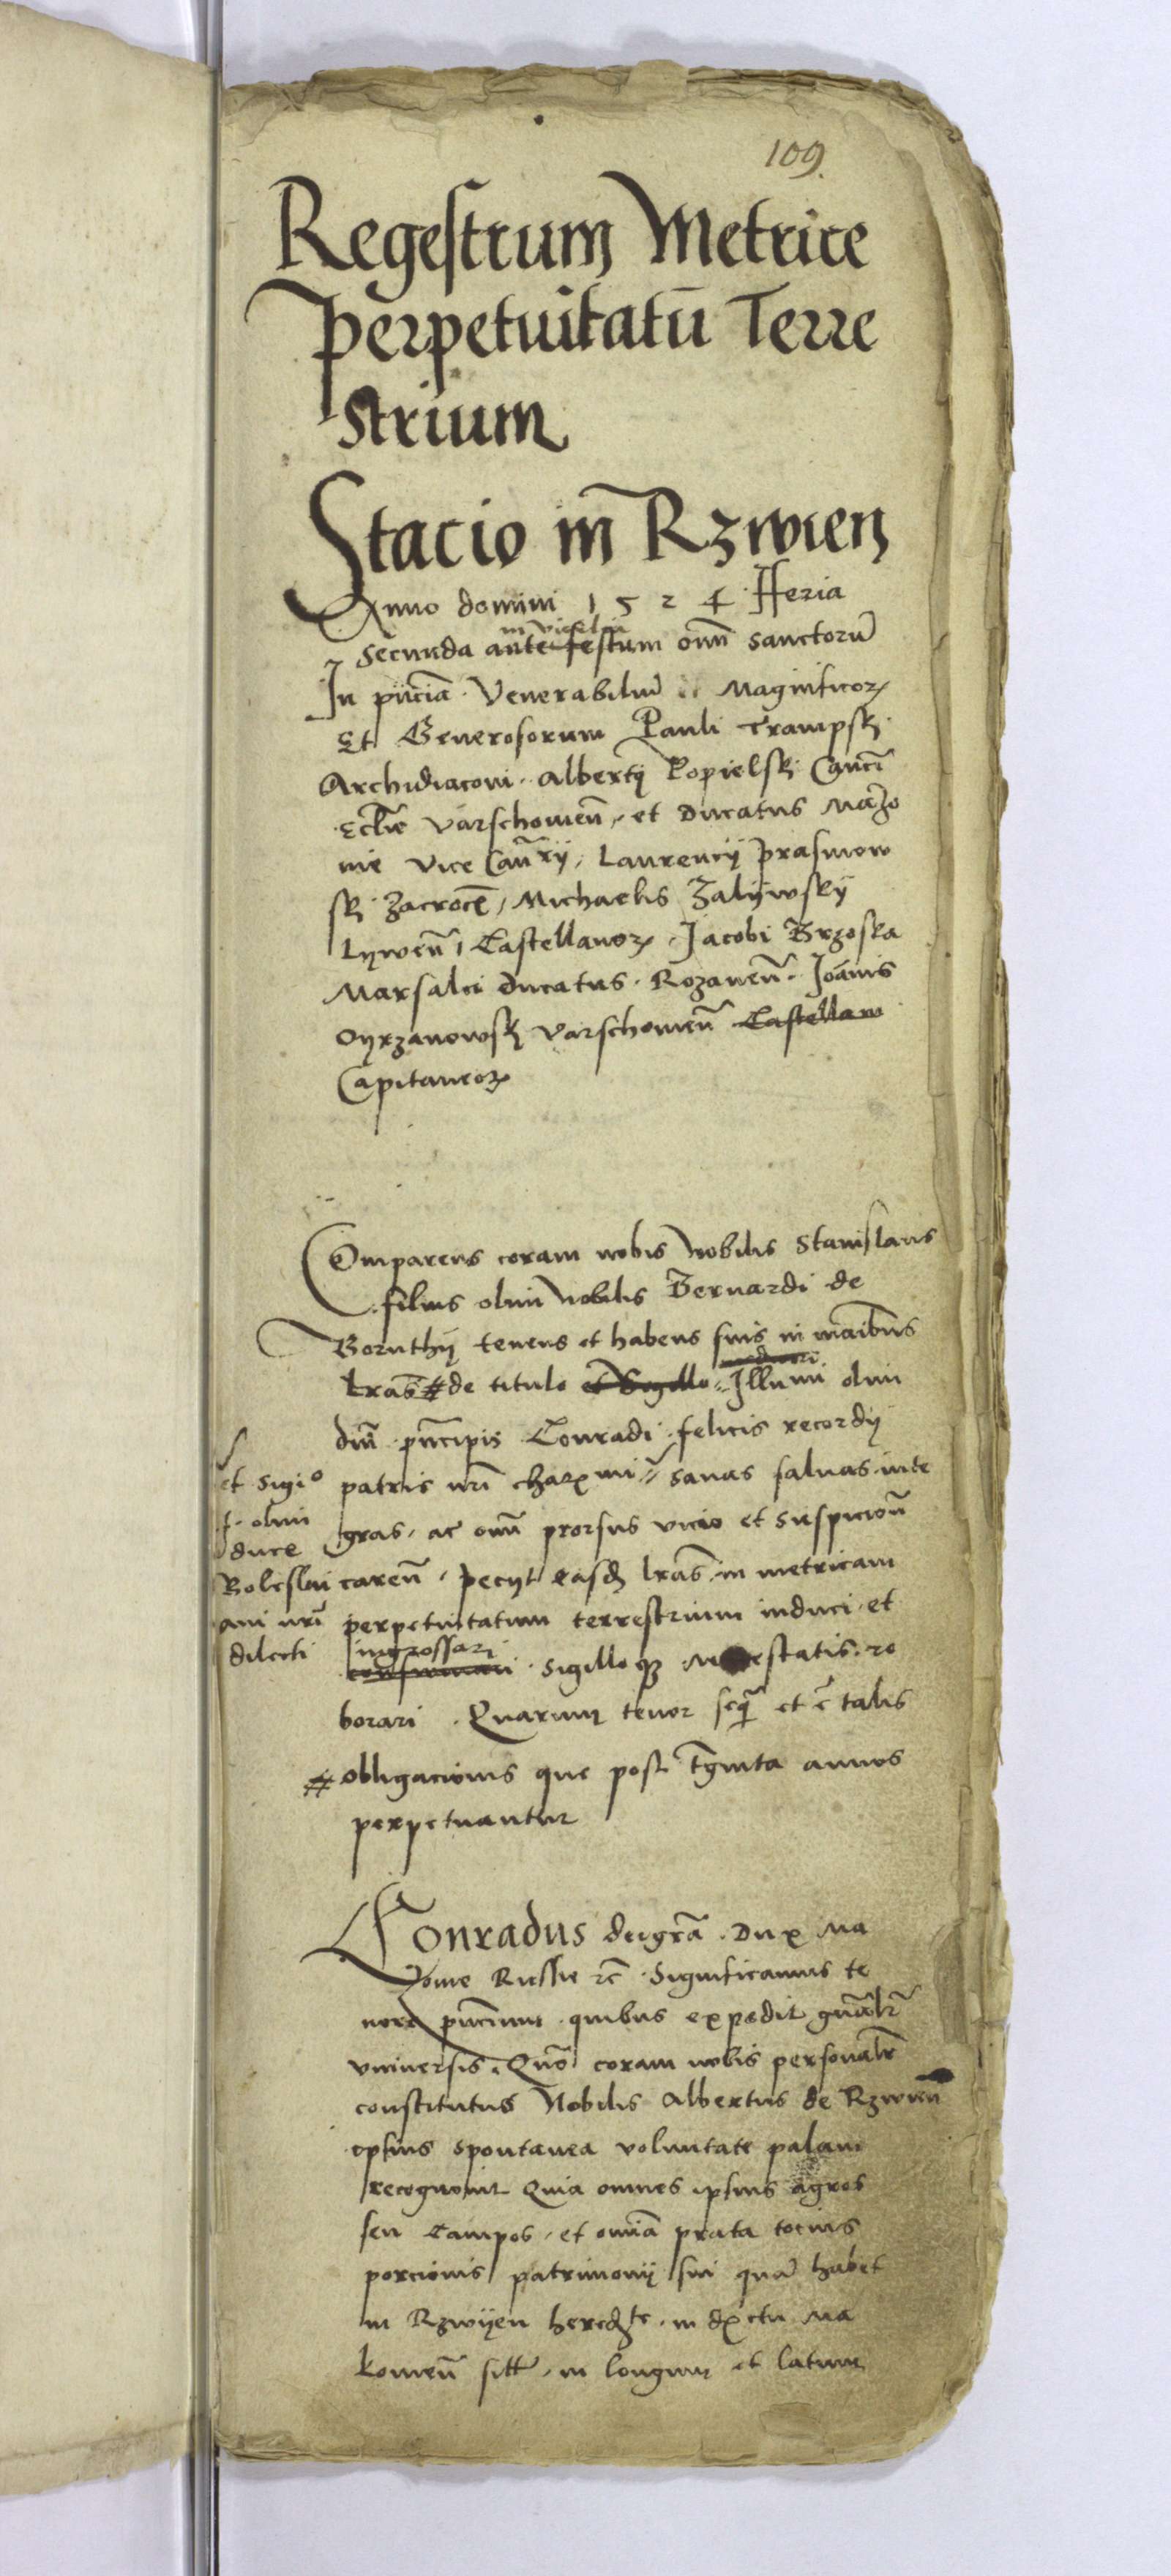 109.
Regestrum Metrice
Perpetuitatū Terre
strium
Stacio in Rzwien
Anno domini 1524 Feria
in vigilia
Secunda ante festum omī sanctorū
In pn̄cia Venerabiliū Magnificoꝝ
Et Generosorum Pauli Trampsky
Archidiaconi Albertÿ Popielsky Canci
Ecclīe Varschoviēn et Ducatus Mazo
vie Vice Cancrÿ, Laurencÿ Prasmow
sky Zacrocēn, Michaelis Zalÿwskÿ
Lÿwēn Castellanoꝝ Jacobi Brzoska
Marsalci Ducatus Rozanēn Joānis
Oÿrzanowskÿ Varschoviēn Castellan
Capitaneoꝝ
Comparens coram nobis Nobilis Stanislaus
filius olim Nobilis Bernardi de
Boruthÿ tenens et habens suis in manibus
lrās # de titulo et Sigillo Illumi olim
dnī principis Conradi felicis recordÿ
patris nrī charmi sanas saluas inte
gras, ac omī prorsus vicio et suspicionē
carēn, pecÿt easdē lrās in metricam
perpetuitatum terrestrium induci et
ingrossari
sigilloqꝫ maiestatis ro
borari. Quarum tenor sequīt et ē talis
# obligacionis que post trīginta annos
perpetuantur
et sigio
f. olim
duce
Boleslai
avi nrī
dilecti
Conradus dei grā Dux Ma
zovie Russie etc Significamus te
nore pn̄cium quibus expedit gnālr
vniuersis, Quō coram nobis personalr
constitutus Nobilis Albertus de Rzwien
ipsius spontanea voluntate palam
recognouit Quia omnes ipsius agros
seu campos, et omīa prata tocius
porcionis patrimonÿ sui quā habet
in Rzwÿen heredte in dꝫctu Ma
kowiēn sitt, in longum et latum